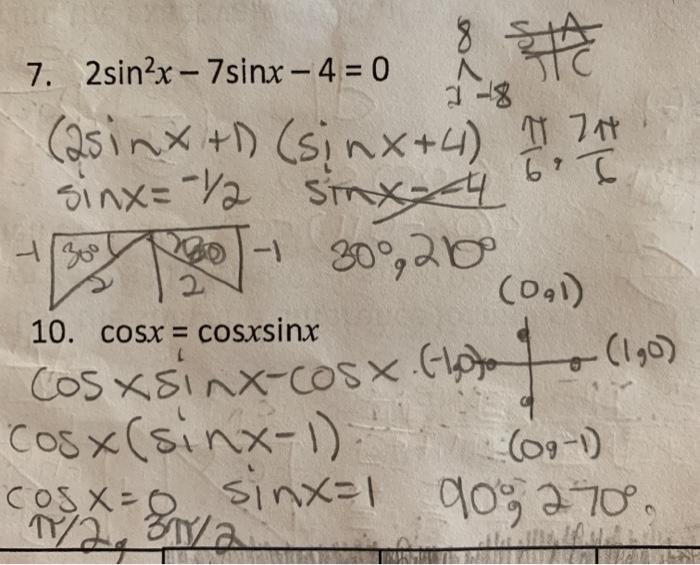 7. 2sin²x – 7sinx – 4 = 0
8
2 -8
S A
T C
(2sinx+1) (sinx+4)
π/6, 7π/6
sinx= -1/2 sinx=-4
-1 30° 2 30 2 -1
30°, 210°
10. cosx = cosxsinx
(0,1)
cosxsinx-cosx
(-1,0) (1,0)
cosx(sinx-1)
(0,-1)
cosx=0 sinx=1 90°, 270°
π/2, 3π/2